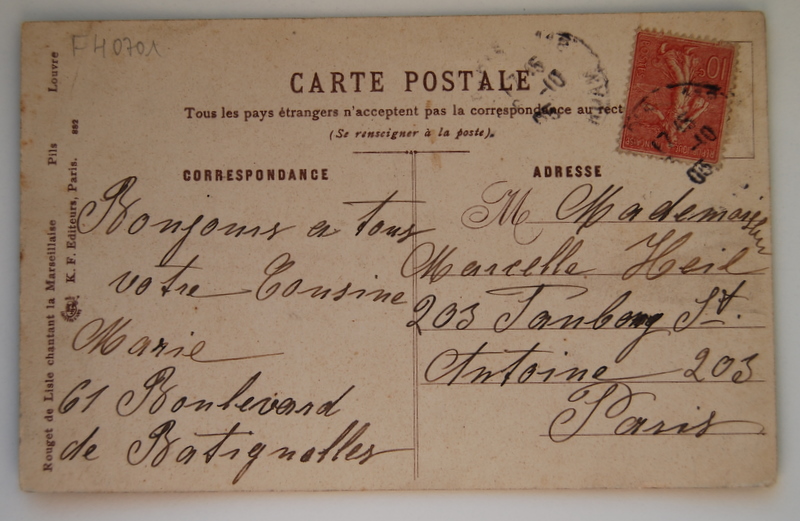 F 40701
CARTE POSTALE
Tous les pays étrangers n'acceptent pas la correspondance au rect
(Se renseigner à la poste).
CORRESPONDANCE
Bonjour a tous
votre Cousine
Marie
61 Boulevard
de Batignolles
ADRESSE
M Mademoiselle
Marcelle Heil
203 Faubourg St.
Antoine 203
Paris
Rouget de Lisle chantant la Marseillaise Pils Louvre
K. F. Editeurs, Paris. 882
10
17 15
-10
05